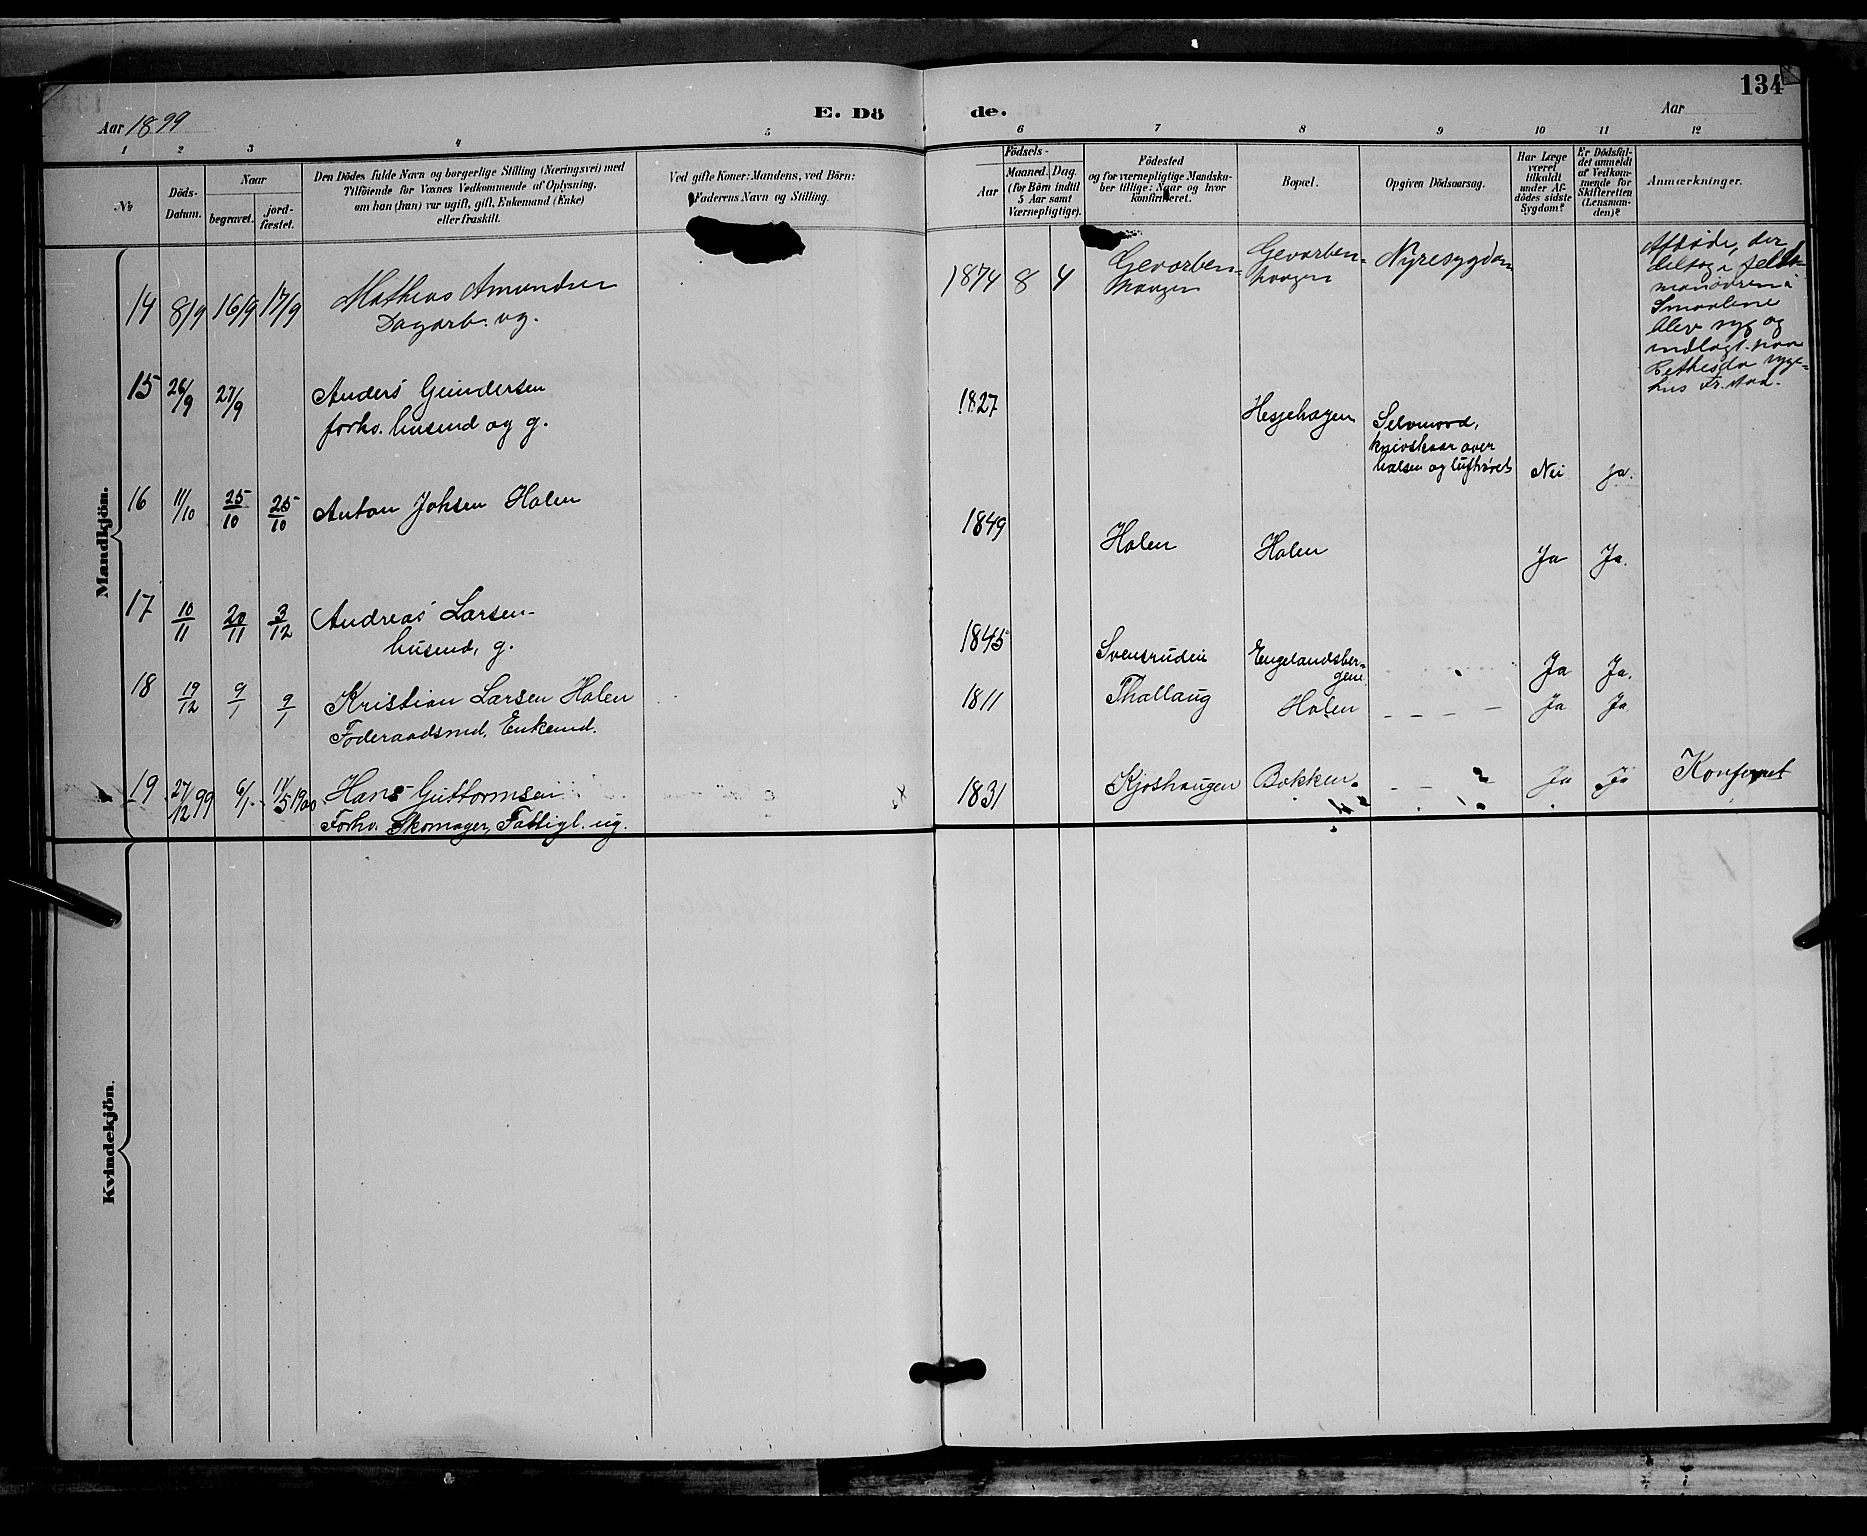 134
Aar 1899
E. Dö de.
Aar
1 2 3 4 5 6 7 8 9 10 11 12
No
Döds-
Datum.
Naar
begravet.
jord-
fæstet.
Den Dödes fulde Navn og borgerlige Stilling (Næringsvei) med
Tilföiende for Voxnes Vedkommende af Oplysning,
om han (hun) var ugift, gift, Enkemand (Enke)
eller fraskilt.
Ved gifte Koner: Mandens, ved Börn:
Faderens Navn og Stilling.
Födsels-
Aar
Maaned. Dag.
(for Börn indtil
5 Aar samt
Værnepligtige).
Födested
og for værnepligtige Mandska-
ber tillige: Naar og hvor
konfirmeret.
Bopæl.
Opgiven Dödsaarsag.
Har Læge
været
tilkaldt
under Af-
dödes sidste
Sygdom?
Er Dödsfal-
det anmeldt
af Vedkom-
mende for
Skifteretten
(Lensman-
den)?
Anmærkninger.
Mandkjön.
14 8/9 16/9 17/9 Mathias Amundsen
Dagarb. ug.
1874 8 4
Gevorben-
haugen
Gevorben-
haugen
Nyresygdom
Afdøde, der
deltog i felt-
manøvren i
Smaalene
blev syg og
indlagt paa
Bethesda syge-
hus Fr.stad.
15 26/9 27/9 Anders Gundersen
forhv. husmd og g.
1827
Hesjehagen
Selvmord,
knivskaar over
halsen og luftrøret
Nei ja.
16 11/10 25/10 25/10 Anton Johsen Holen
1849 Holen Holen Ja Ja.
17 10/11 20/11 3/12 Andreas Larsen
husmd, g.
1845 Svensrudeie Engelandsber-
gene
Ja Ja.
18 19/12 9/1 9/1 Kristian Larsen Holen
Föderaadsmd. Enkemd.
1811 Thallaug Holen Ja Ja
19 27/12 99 6/1 11/5 1900 Hans Guttormsen
Forhv. Skomager, Fattigl. ug.
1831 Kjoshaugen Bakken Ja Ja
Kvindekjön.